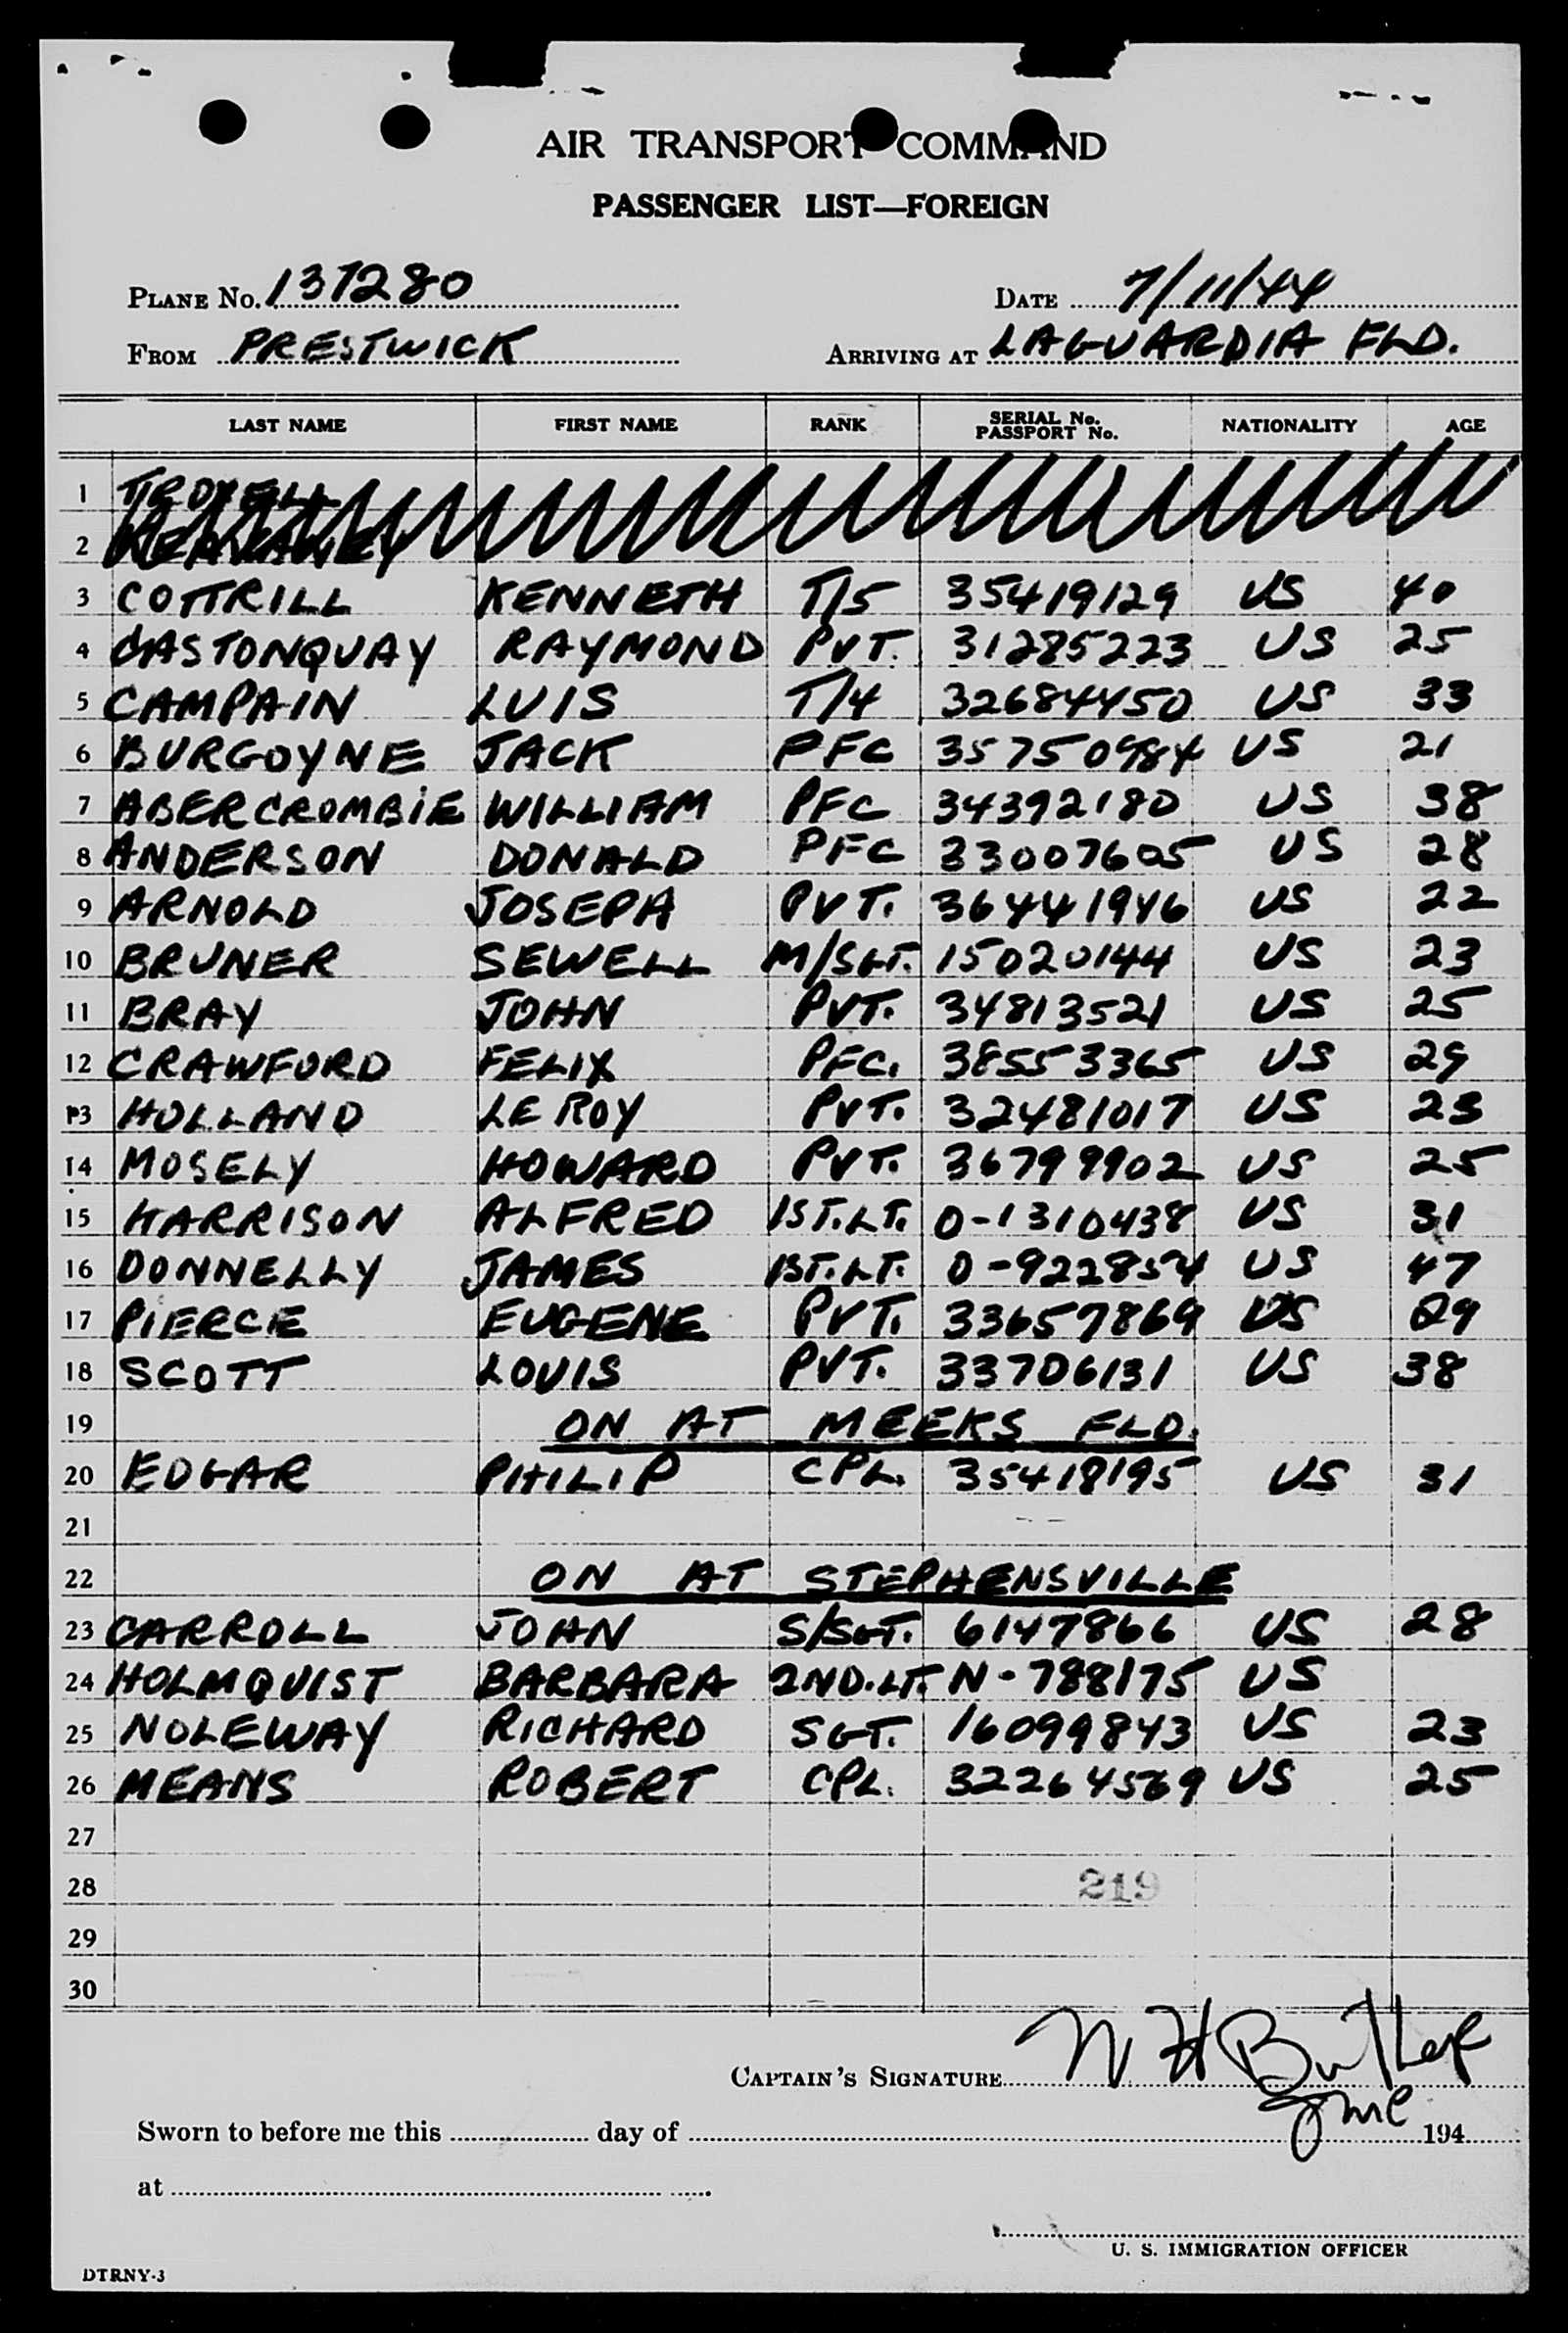 AIR TRANSPORT COMMAND
PASSENGER LIST—FOREIGN
PLANE No. 137280 DATE 7/11/44
FROM PRESTWICK ARRIVING AT LAGUARDIA FLD.
LAST NAME FIRST NAME RANK SERIAL No. PASSPORT No. NATIONALITY AGE
1 TROXELL
2
3 COTTRILL KENNETH T/5 35419129 US 40
4 GASTONQUAY RAYMOND PVT. 31285223 US 25
5 CAMPAIN LUIS T/4 32684450 US 33
6 BURGOYNE JACK PFC 35750984 US 21
7 ABERCROMBIE WILLIAM PFC 34392180 US 38
8 ANDERSON DONALD PFC 33007605 US 28
9 ARNOLD JOSEPH PVT. 36441946 US 22
10 BRUNER SEWELL M/SGT. 15020144 US 23
11 BRAY JOHN PVT. 34813521 US 25
12 CRAWFORD FELIX PFC. 38553365 US 29
13 HOLLAND LE ROY PVT. 32481017 US 23
14 MOSELY HOWARD PVT. 36799902 US 25
15 HARRISON ALFRED 1ST.LT. O-1310438 US 31
16 DONNELLY JAMES 1ST.LT. O-922854 US 47
17 PIERCE EUGENE PVT. 33657869 US 29
18 SCOTT LOUIS PVT. 33706131 US 38
19 ON AT MEEKS FLD.
20 EDGAR PHILIP CPL. 35418195 US 31
21
22 ON AT STEPHENSVILLE
23 CARROLL JOHN S/SGT. 6147866 US 28
24 HOLMQUIST BARBARA 2ND.LT. N-788175 US
25 NOLEWAY RICHARD SGT. 16099843 US 23
26 MEANS ROBERT CPL. 32264569 US 25
27
28 219
29
30
CAPTAIN'S SIGNATURE N H Butler
Sworn to before me this day of 194
at
U. S. IMMIGRATION OFFICER
DTRNY-3